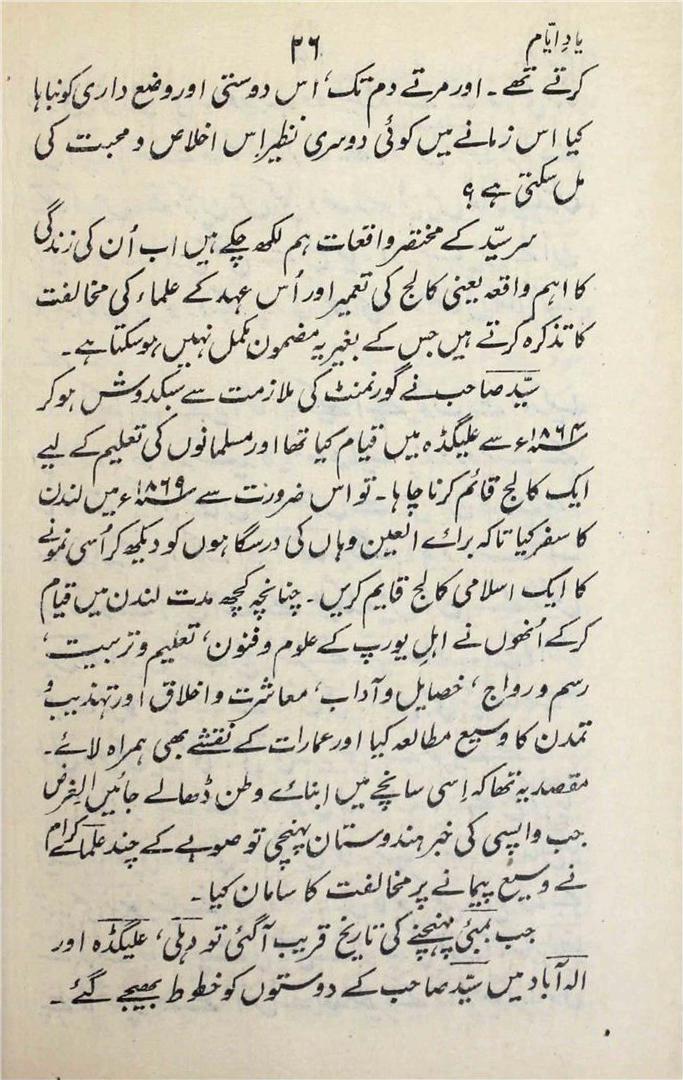 یادِ ایّام
۳۶
کرتے تھے۔ اور مرتے دم تک، اس دوستی اور وضع داری کو نباہا
کیا اس زمانے میں کوئی دوسری نظیر اِس اخلاص و محبت کی
مل سکتی ہے؟
سر سیّد کے مختصر واقعات ہم لکھ چکے ہیں اب اُن کی زندگی
کا اہم واقعہ یعنی کالج کی تعمیر اور اُس عہد کے علماء کی مخالفت
کا تذکرہ کرتے ہیں جس کے بغیر یہ مضمون مکمل نہیں ہو سکتا ہے۔
سیّد صاحب نے گورنمنٹ کی ملازمت سے سبکدوش ہو کر
۱۸۶۴ء سے علیگڈہ میں قیام کیا تھا اور مسلمانوں کی تعلیم کے لیے
ایک کالج قائم کرنا چاہا۔ تو اس ضرورت سے ۱۸۶۹ء میں لندن
کا سفر کیا تاکہ براے العین وہاں کی درسگاہوں کو دیکھ کر اُسی نمونے
کا ایک اسلامی کالج قایم کریں۔ چنانچہ کچھ مدت لندن میں قیام
کر کے اُنھوں نے اہلِ یورپ کے علوم و فنون، تعلیم و تربیت،
رسم و رواج، خصایل و آداب، معاشرت و اخلاق اور تہذیب و
تمدن کا وسیع مطالعہ کیا اور عمارات کے نقشے بھی ہمراہ لائے۔
مقصد یہ تھا کہ اِسی سانچے میں ابنائے وطن ڈھالے جائیں الغرض
جب واپسی کی خبر ہندوستان پہنچی تو صوبے کے چند علمائے کرام
نے وسیع پیمانے پر مخالفت کا سامان کیا۔
جب بمبئی پہنچنے کی تاریخ قریب آ گئی تو دہلی، علیگڈہ اور
الہ آباد میں سیّد صاحب کے دوستوں کو خطوط بھیجے گئے۔